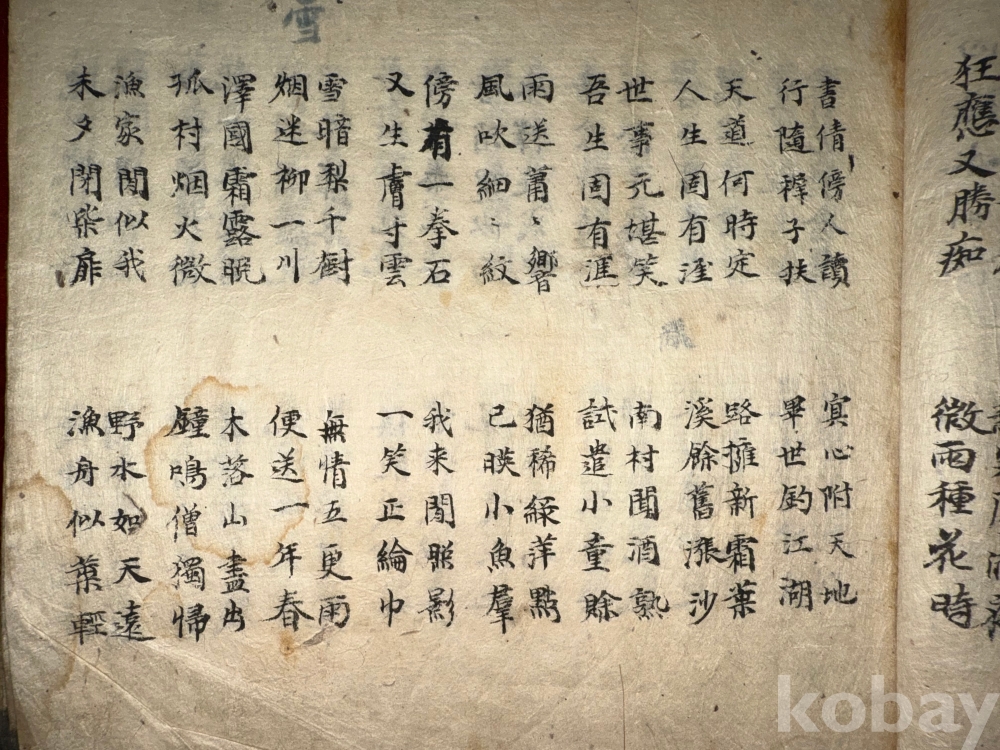 狂應又勝痴
微雨種花時
書倩傍人讀
行隨稚子扶
天道何時定
人生固有涯
世事元堪笑
吾生固有涯
雨送蕭〻響
風吹細〻紋
傍有一拳石
又生膚寸雲
雪暗梨千樹
烟迷柳一川
澤國霜露晚
孤村烟火微
漁家閒似我
未夕閉柴扉
冥心附天地
畢世釣江湖
路擁新霜葉
溪餘舊漲沙
南村聞酒熟
試遣小童賒
猶稀綠萍點
已暎小魚羣
我来閒照影
一笑正綸巾
無情五更雨
便送一年春
木落山盡出
鐘鳴僧獨歸
野水如天遠
漁舟似葉輕
雪
kobay